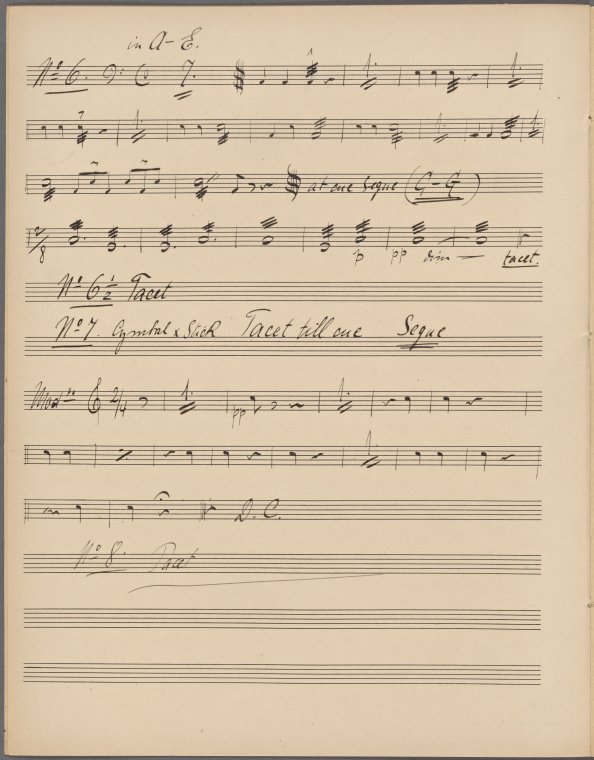 in A – E.
No 6. 7.
at cue Segue (G – G)
2/8 p pp dim — tacet.
No 6½ Tacet
No 7. Cymbal & Stick Tacet till cue Segue
Modto 2/4 pp
D.C.
No 8. Tacet